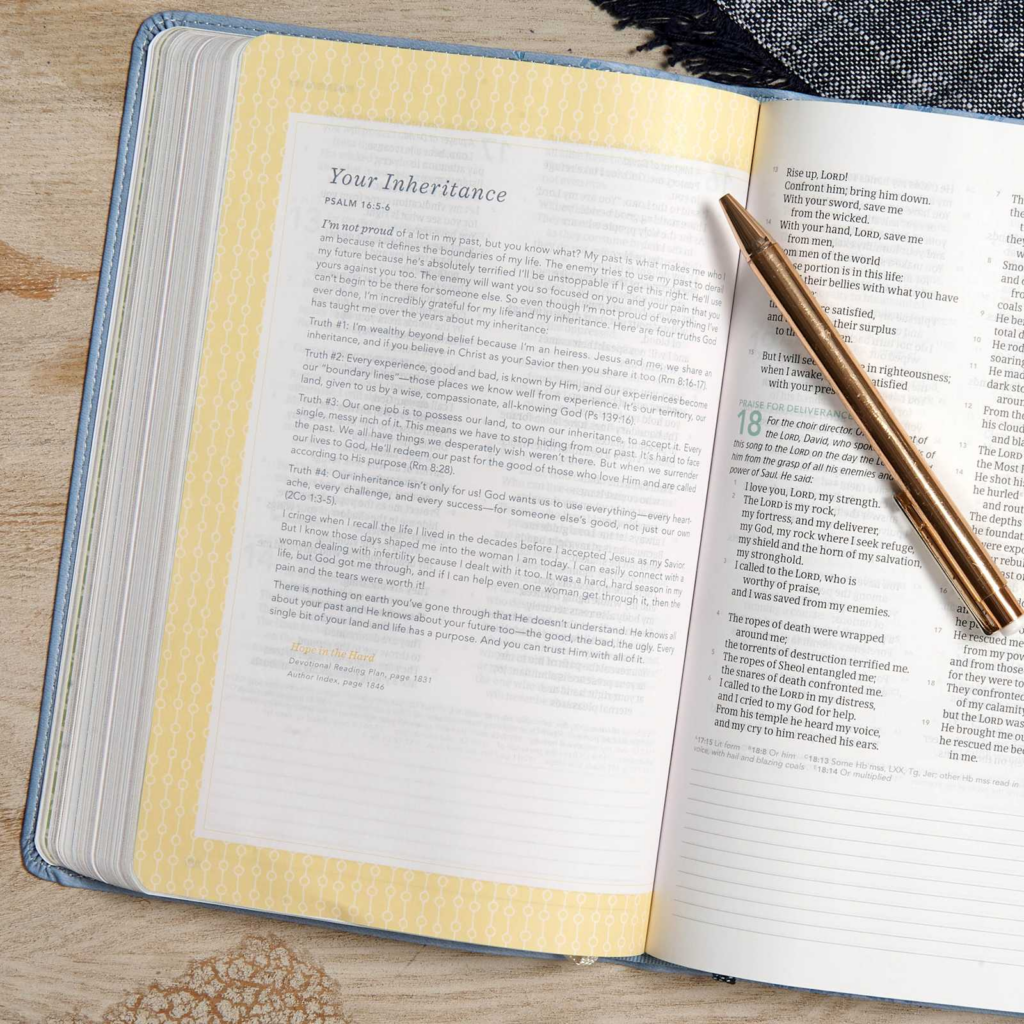 Your Inheritance
PSALM 16:5-6
I'm not proud of a lot in my past, but you know what? My past is what makes me who I
am because it defines the boundaries of my life. The enemy tries to use my past to derail
my future because he's absolutely terrified I'll be unstoppable if I get this right. He'll use
yours against you too. The enemy will want you so focused on you and your pain that you
can't begin to be there for someone else. So even though I'm not proud of everything I've
ever done, I'm incredibly grateful for my life and my inheritance. Here are four truths God
has taught me over the years about my inheritance:
Truth #1: I'm wealthy beyond belief because I'm an heiress. Jesus and me, we share an
inheritance, and if you believe in Christ as your Savior then you share it too (Rm 8:16-17).
Truth #2: Every experience, good and bad, is known by Him, and our experiences become
our "boundary lines"—those places we know well from experience. It's our territory, our
land, given to us by a wise, compassionate, all-knowing God (Ps 139:16)
Truth #3: Our one job is to possess our land, to own our inheritance, to accept it. Every
single, messy inch of it. This means we have to stop hiding from our past. It's hard to face
the past. We all have things we desperately wish weren't there. But when we surrender
our lives to God, He'll redeem our past for the good of those who love Him and are called
according to His purpose (Rm 8:28).
Truth #4: Our inheritance isn't only for us! God wants us to use everything—every heart-
ache, every challenge, and every success—for someone else's good, not just our own
(2Co 1:3-5).
I cringe when I recall the life I lived in the decades before I accepted Jesus as my Savior.
But I know those days shaped me into the woman I am today. I can easily connect with a
woman dealing with infertility because I dealt with it too. It was a hard, hard season in my
life, but God got me through, and if I can help even one woman get through it, then the
pain and the tears were worth it!
There is nothing on earth you've gone through that He doesn't understand. He knows all
about your past and He knows about your future too—the good, the bad, the ugly. Every
single bit of your land and life has a purpose. And you can trust Him with all of it.
Hope in the Hard
Devotional Reading Plan, page 1831
Author Index, page 1846
13 Rise up, LORD!
Confront him; bring him down.
With your sword, save me
from the wicked.
14 With your hand, LORD, save me
from men,
om men of the world
portion is in this life;
their bellies with what you have
re satisfied,
and their surplus
to th en.
15 But I will see in righteousness;
when I awake, atisfied
with your pres
PRAISE FOR DELIVERANCE
18 For the choir director. O of
the LORD, David, who spo
this song to the LORD on the day the L
him from the grasp of all his enemies and
power of Saul. He said:
1 I love you, LORD, my strength.
2 The LORD is my rock,
my fortress, and my deliverer,
my God, my rock where I seek refuge,
my shield and the horn of my salvation,
my stronghold.
3 I called to the LORD, who is
worthy of praise,
and I was saved from my enemies.
4 The ropes of death were wrapped
around me;
the torrents of destruction terrified me.
5 The ropes of Sheol entangled me;
the snares of death confronted me.
6 I called to the LORD in my distress,
and I cried to my God for help.
From his temple he heard my voice,
and my cry to him reached his ears.
7 Th
the
t
they
w
8 Smo
and
c
coals
9 He be
total d
10 He rod
soaring
11 He mad
dark sto
aroun
12 From th
his cloud
and bla
13 The LORD
the Most H
14 He shot hi
he hurled
and rout
The depths
foundat
were expo
rebu
16
an
he p
17 He rescued m
from my pow
and from those
for they were to
18 They confronted
of my calamity
but the LORD was
19 He brought me ou
he rescued me bec
in me.
17:15 Lit form 18:8 Or him 18:13 Some Hb mss, LXX, Tg, Jer; other Hb mss read in
voice, with hail and blazing coals 18:14 Or multiplied